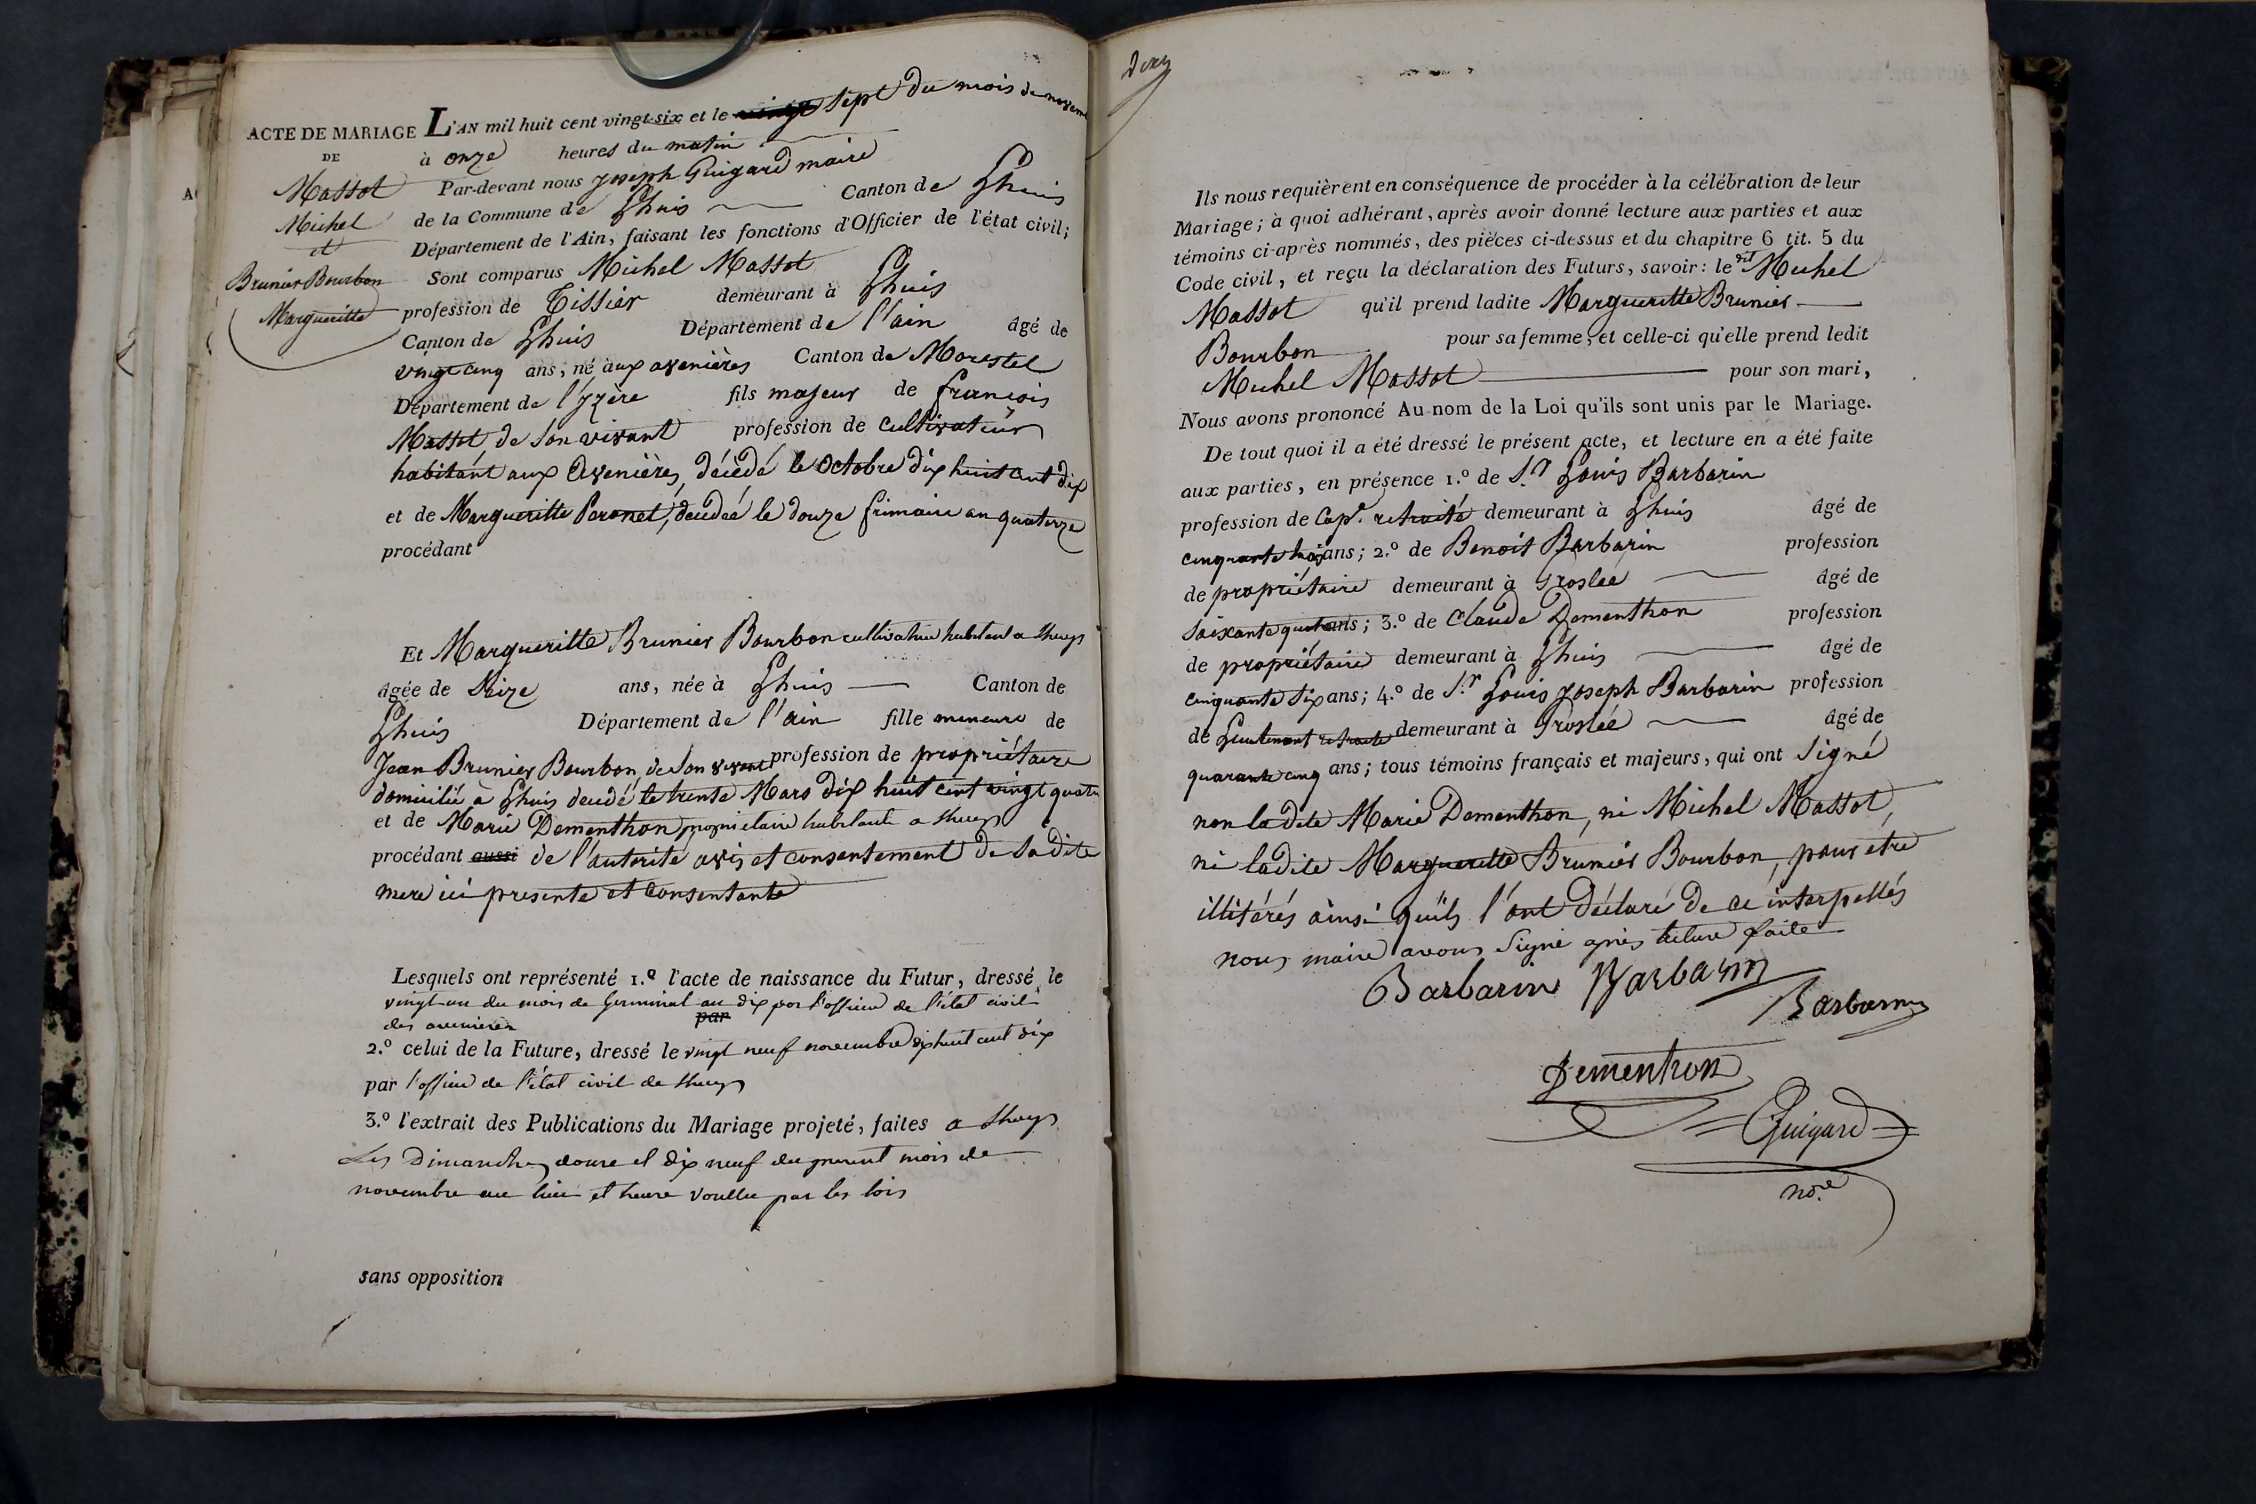 ACTE DE MARIAGE
DE
Massot
Michel
et
Brunier Bourbon
Margueritte
L'AN mil huit cent vingt-six et le vingt sept du mois de novem
à onze heures du matin
Par-devant nous Joseph Guigard maire
de la Commune de Lhuis Canton de Lhuis
Département de l'Ain, faisant les fonctions d'Officier de l'état civil;
Sont comparus Michel Massot
profession de Tissier demeurant à Lhuis
Canton de Lhuis Département de l'ain âgé de
vingt cinq ans, né aux avenières Canton de Morestel
Département de l'Yzère fils majeur de françois
Massot, de son vivant profession de cultivateur
habitant aux Avenières, décédé le octobre dix huit cent dix
et de Margueritte Peronet, décedeé le douze frimaire an quatorze
procédant
Et Margueritte Brunier Bourbon cultivatrice habitant a Lhuys
âgée de Seize ans, née à Lhuis Canton de
Lhuis Département de l'ain fille mineure de
Jean Brunier Bourbon, de son vivant profession de propriétaire
domicilié à Lhuis decedé le trente Mars dix huit cent vingt quatre
et de Marie Dementhon, proprietaire habitante a Lhuys
procédant aussi de l'autorité avis et consentement de sa dite
mere ici presente et consentante
Lesquels ont représenté 1.º l'acte de naissance du Futur, dressé le
vingt-un du mois de Germinal an dix par l'officier de l'état civil
par
des avenieres
2.º celui de la Future, dressé le vingt neuf novembre dix huit cent dix
par l'officier de l'état civil de Lhuys
3.º l'extrait des Publications du Mariage projeté, faites a Lhuys
Les Dimanches douze et dix neuf du present mois de
novembre aux lieu et heure voullu par les lois
sans opposition
Ils nous requièrent en conséquence de procéder à la célébration de leur
Mariage; à quoi adhérant, après avoir donné lecture aux parties et aux
témoins ci-après nommés, des pièces ci-dessus et du chapitre 6 tit. 5 du
Code civil, et reçu la déclaration des Futurs, savoir: le dit Michel
Massot qu'il prend ladite Margueritte Brunier
Bourbon pour sa femme, et celle-ci qu'elle prend ledit
Michel Massot pour son mari,
Nous avons prononcé Au nom de la Loi qu'ils sont unis par le Mariage.
De tout quoi il a été dressé le présent acte, et lecture en a été faite
aux parties, en présence 1.º de S.r Louis Barbarin
profession de Cap.e retraité demeurant à Lhuis âgé de
cinquante trois ans; 2.º de Benoit Barbarin profession
de propriétaire demeurant à Groslée âgé de
soixante quatre ans; 3.º de Claude Dementhon profession
de propriétaire demeurant à Lhuis âgé de
cinquante six ans; 4.º de S.r Louis Joseph Barbarin profession
de Lieutenant retraite demeurant à Groslée âgé de
quarante cinq ans; tous témoins français et majeurs, qui ont Signé
non ladite Marie Dementhon, ni Michel Massot,
ni ladite Marguerette Brunier Bourbon, pour etre
illitérés ainsi qu'ils l'ont déclaré de ce interpellés
nous maire avons signé après lecture faite
Barbarin Barbarin
Barbarin
Dementhon
Guigard
no.re